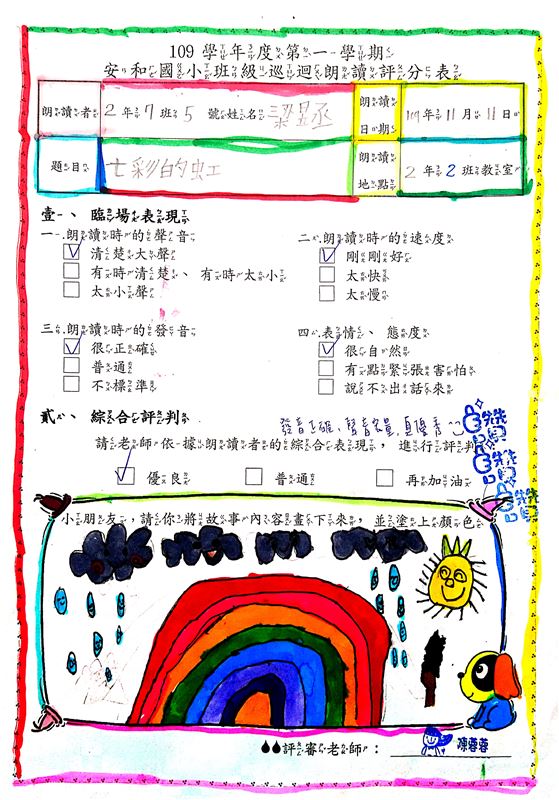 109 學年度第一學期
安和國小班級巡迴朗讀評分表
朗讀者 2年7班5 號姓名 梁昱丞 朗讀日期 109年11月11日
題目 七彩的虹 朗讀地點 2年2班教室
壹、臨場表現
一.朗讀時的聲音
清楚大聲
有時清楚、有時太小
太小聲
二.朗讀時的速度
剛剛好
太快
太慢
三.朗讀時的發音
很正確
普通
不標準
四.表情、態度
很自然
有點緊張害怕
說不出話來
貳、綜合評判
發音正確,聲音宏亮,真優秀
請老師依據朗讀者的綜合表現,進行評判
優良 普通 再加油
小朋友,請你將故事內容畫下來,並塗上顏色
評審老師:陳蓉蓉